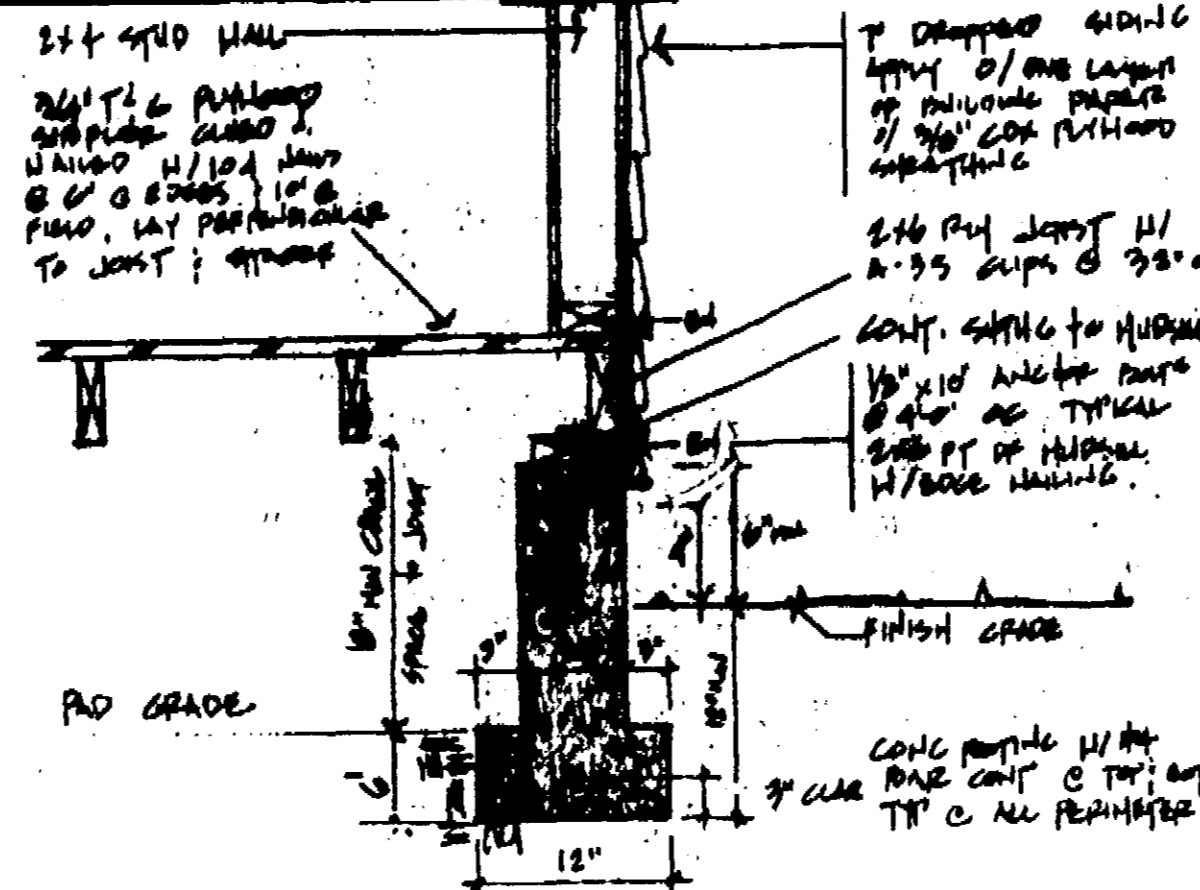 2x4 STUD WALL
3/4" T & G PLYWOOD
GLUED &
NAILED W/10d NAILS
@ 6" @ EDGES 10" @
FIELD. LAY PERPENDICULAR
TO JOIST &
DROPPED SIDING
APPLY O/ ONE LAYER
OF BUILDING PAPER
O/ 3/8" CDX PLYWOOD
SHEATHING
2x6 RIM JOIST W/
A-35 CLIPS @ 32"
CONT. SHTHG to MUDSILL
1/2" x 10" ANCHOR BOLTS
@ 4'-0" OC TYPICAL
PT DF MUDSILL
W/EDGE NAILING.
18" MIN CRAWL
SPACE to JOIST
6" MIN
FINISH GRADE
3"
3"
PAD GRADE
6"
3" CLEAR
CONC FOOTING W/ #4
BAR CONT @ TOP & BOT
TYP @ ALL PERIMETER
12"